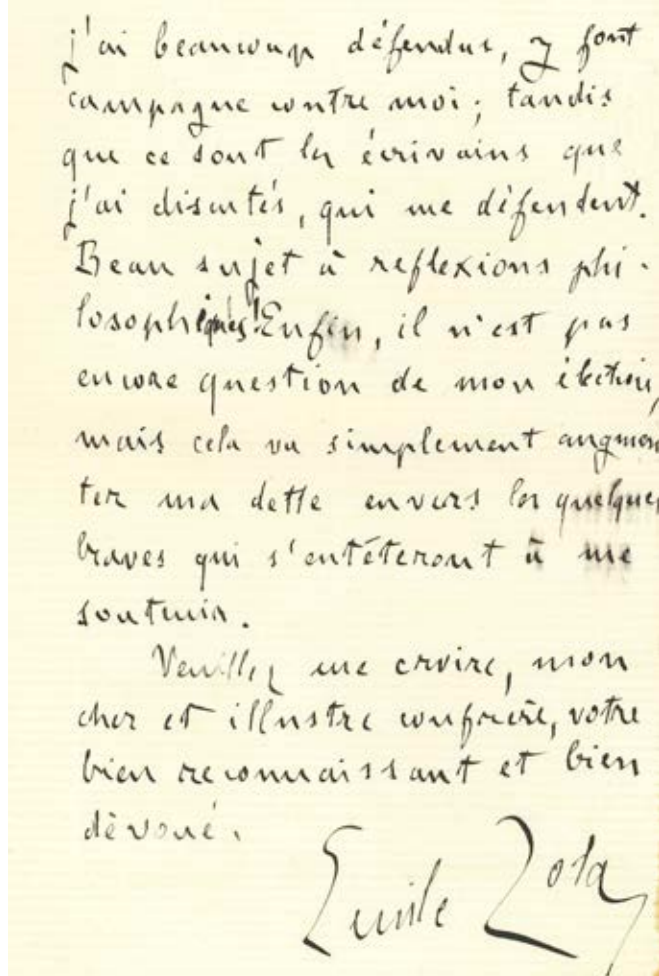 j'ai beaucoup défendus, y font
campagne contre moi; tandis
que ce sont les écrivains que
j'ai discutés, qui me défendent.
Beau sujet à reflexions phi-
losophiques! Enfin, il n'est pas
encore question de mon élection,
mais cela va simplement augmen
ter ma dette envers les quelques
braves qui s'entêteront à me
soutenir.
Veuillez me croire, mon
cher et illustre confrère, votre
bien reconnaissant et bien
dévoué.
Emile Zola